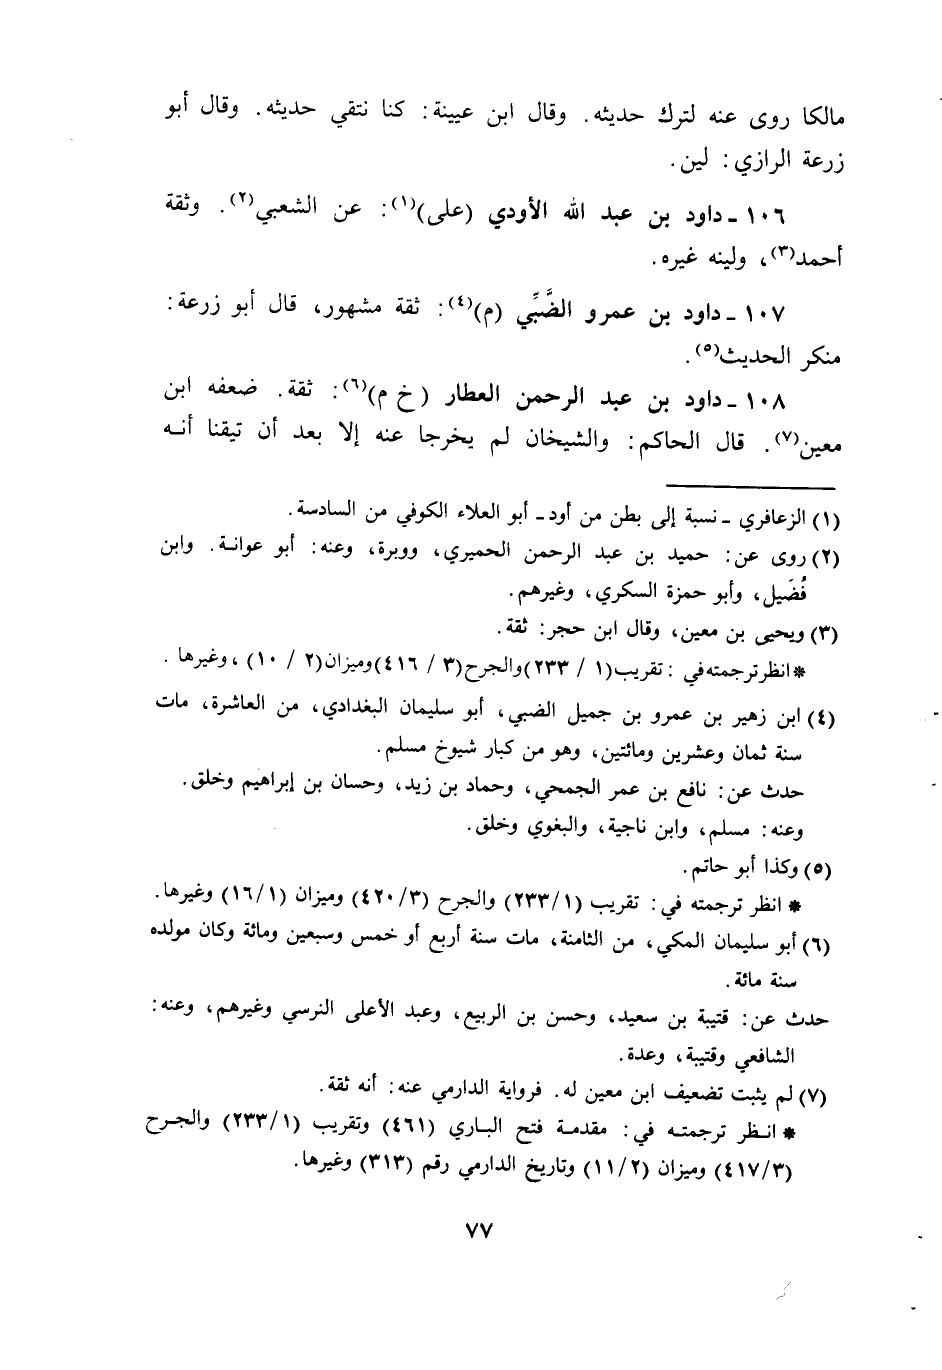 مالكا روى عنه لترك حديثه. وقال ابن عيينة: كنا نتقي حديثه. وقال أبو
زرعة الرازي: لين.
١٠٦ ـ داود بن عبد الله الأودي (على)(١): عن الشعبي(٢). وثقة
أحمد(٣)، ولينه غيره.
١٠٧ ـ داود بن عمرو الضَّبِّي (م)(٤): ثقة مشهور، قال أبو زرعة:
منكر الحديث(٥).
١٠٨ ـ داود بن عبد الرحمن العطار (خ م)(٦): ثقة. ضعفه ابن
معين(٧). قال الحاكم: والشيخان لم يخرجا عنه إلا بعد أن تيقنا أنه
(١) الزعافري ـ نسبة إلى بطن من أود ـ أبو العلاء الكوفي من السادسة.
(٢) روى عن: حميد بن عبد الرحمن الحميري، ووبرة، وعنه: أبو عوانة. وابن
فُضَيل، وأبو حمزة السكري، وغيرهم.
(٣) ويحيى بن معين، وقال ابن حجر: ثقة.
* انظر ترجمته في: تقريب (١ / ٢٣٣) والجرح (٣ / ٤١٦) وميزان (٢ / ١٠)، وغيرها.
(٤) ابن زهير بن عمرو بن جميل الضبي، أبو سليمان البغدادي، من العاشرة، مات
سنة ثمان وعشرين ومائتين، وهو من كبار شيوخ مسلم.
حدث عن: نافع بن عمر الجمحي، وحماد بن زيد، وحسان بن إبراهيم وخلق.
وعنه: مسلم، وابن ناجية، والبغوي وخلق.
(٥) وكذا أبو حاتم.
* انظر ترجمته في: تقريب (٢٣٣/١) والجرح (٤٢٠/٣) وميزان (١٦/١) وغيرها.
(٦) أبو سليمان المكي، من الثامنة، مات سنة أربع أو خمس وسبعين ومائة وكان مولده
سنة مائة.
حدث عن: قتيبة بن سعيد، وحسن بن الربيع، وعبد الأعلى النرسي وغيرهم، وعنه:
الشافعي وقتيبة، وعدة.
(٧) لم يثبت تضعيف ابن معين له. فرواية الدارمي عنه: أنه ثقة.
* انظر ترجمته في: مقدمة فتح الباري (٤٦١) وتقريب (٢٣٣/١) والجرح
(٤١٧/٣) وميزان (١١/٢) وتاريخ الدارمي رقم (٣١٣) وغيرها.
٧٧